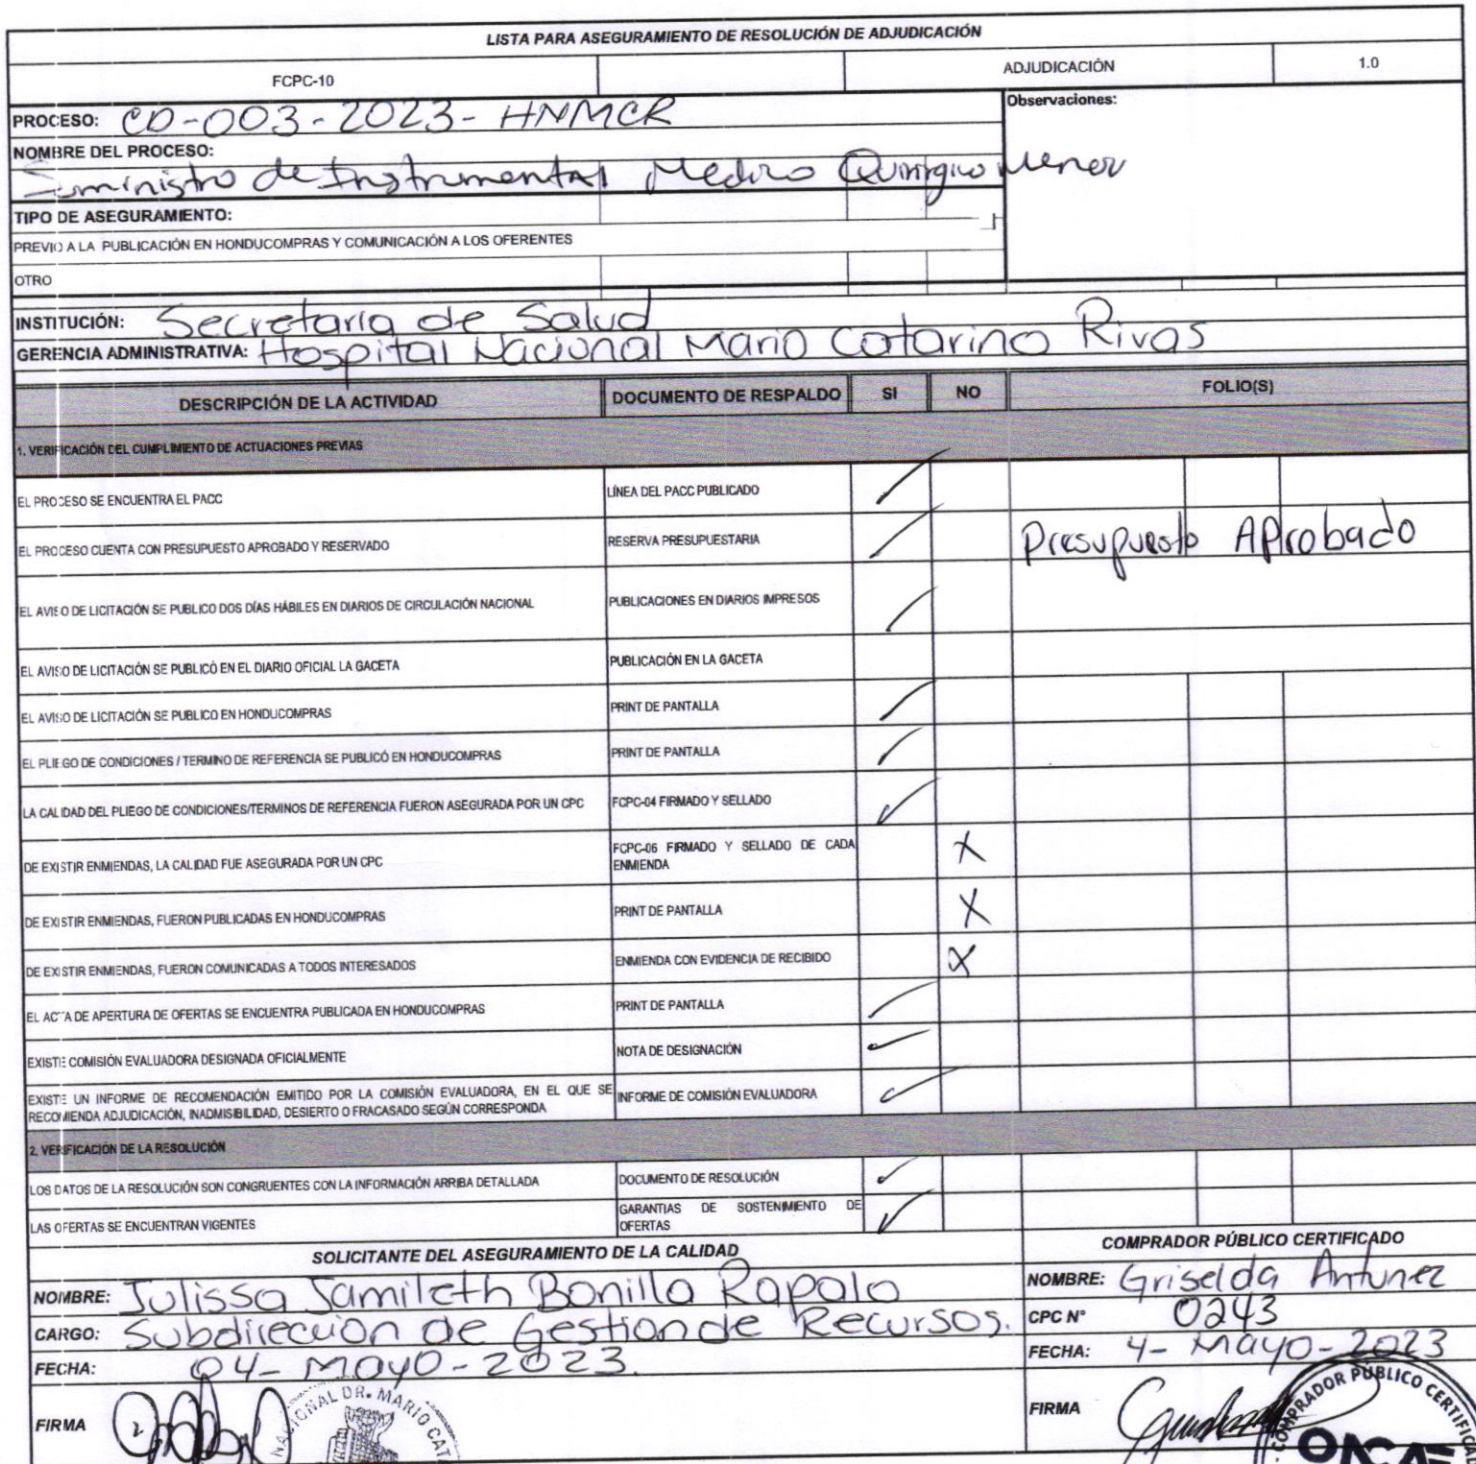 LISTA PARA ASEGURAMIENTO DE RESOLUCIÓN DE ADJUDICACIÓN
FCPC-10 ADJUDICACIÓN 1.0
PROCESO: CD-003-2023-HNMCR
Observaciones:
NOMBRE DEL PROCESO:
Suministro de Instrumental Medico Quirurgico Menor
TIPO DE ASEGURAMIENTO:
PREVIO A LA PUBLICACIÓN EN HONDUCOMPRAS Y COMUNICACIÓN A LOS OFERENTES
OTRO
INSTITUCIÓN: Secretaria de Salud
GERENCIA ADMINISTRATIVA: Hospital Nacional Mario Catarino Rivas
DESCRIPCIÓN DE LA ACTIVIDAD DOCUMENTO DE RESPALDO SI NO FOLIO(S)
1. VERIFICACIÓN DEL CUMPLIMIENTO DE ACTUACIONES PREVIAS
EL PROCESO SE ENCUENTRA EL PACC LÍNEA DEL PACC PUBLICADO ✓
EL PROCESO CUENTA CON PRESUPUESTO APROBADO Y RESERVADO RESERVA PRESUPUESTARIA ✓ Presupuesto Aprobado
EL AVISO DE LICITACIÓN SE PUBLICO DOS DÍAS HÁBILES EN DIARIOS DE CIRCULACIÓN NACIONAL PUBLICACIONES EN DIARIOS IMPRESOS ✓
EL AVISO DE LICITACIÓN SE PUBLICÓ EN EL DIARIO OFICIAL LA GACETA PUBLICACIÓN EN LA GACETA
EL AVISO DE LICITACIÓN SE PUBLICO EN HONDUCOMPRAS PRINT DE PANTALLA ✓
EL PLIEGO DE CONDICIONES / TERMINO DE REFERENCIA SE PUBLICÓ EN HONDUCOMPRAS PRINT DE PANTALLA ✓
LA CALIDAD DEL PLIEGO DE CONDICIONES/TERMINOS DE REFERENCIA FUERON ASEGURADA POR UN CPC FCPC-04 FIRMADO Y SELLADO ✓
DE EXISTIR ENMIENDAS, LA CALIDAD FUE ASEGURADA POR UN CPC FCPC-06 FIRMADO Y SELLADO DE CADA
ENMIENDA X
DE EXISTIR ENMIENDAS, FUERON PUBLICADAS EN HONDUCOMPRAS PRINT DE PANTALLA X
DE EXISTIR ENMIENDAS, FUERON COMUNICADAS A TODOS INTERESADOS ENMIENDA CON EVIDENCIA DE RECIBIDO X
EL ACTA DE APERTURA DE OFERTAS SE ENCUENTRA PUBLICADA EN HONDUCOMPRAS PRINT DE PANTALLA ✓
EXISTE COMISIÓN EVALUADORA DESIGNADA OFICIALMENTE NOTA DE DESIGNACIÓN ✓
EXISTE UN INFORME DE RECOMENDACIÓN EMITIDO POR LA COMISIÓN EVALUADORA, EN EL QUE SE
RECOMIENDA ADJUDICACIÓN, INADMISIBILIDAD, DESIERTO O FRACASADO SEGÚN CORRESPONDA INFORME DE COMISIÓN EVALUADORA ✓
2. VERIFICACIÓN DE LA RESOLUCIÓN
LOS DATOS DE LA RESOLUCIÓN SON CONGRUENTES CON LA INFORMACIÓN ARRIBA DETALLADA DOCUMENTO DE RESOLUCIÓN ✓
LAS OFERTAS SE ENCUENTRAN VIGENTES GARANTIAS DE SOSTENIMIENTO DE
OFERTAS ✓
SOLICITANTE DEL ASEGURAMIENTO DE LA CALIDAD
NOMBRE: Julissa Jamileth Bonilla Rapalo
CARGO: Subdireccion de Gestion de Recursos.
FECHA: 04-Mayo-2023.
FIRMA
NACIONAL DR. MARIO CAT
COMPRADOR PÚBLICO CERTIFICADO
NOMBRE: Griselda Antunez
CPC N° 0243
FECHA: 4-Mayo-2023
FIRMA
COMPRADOR PÚBLICO CERTIFICAD
ONCAE